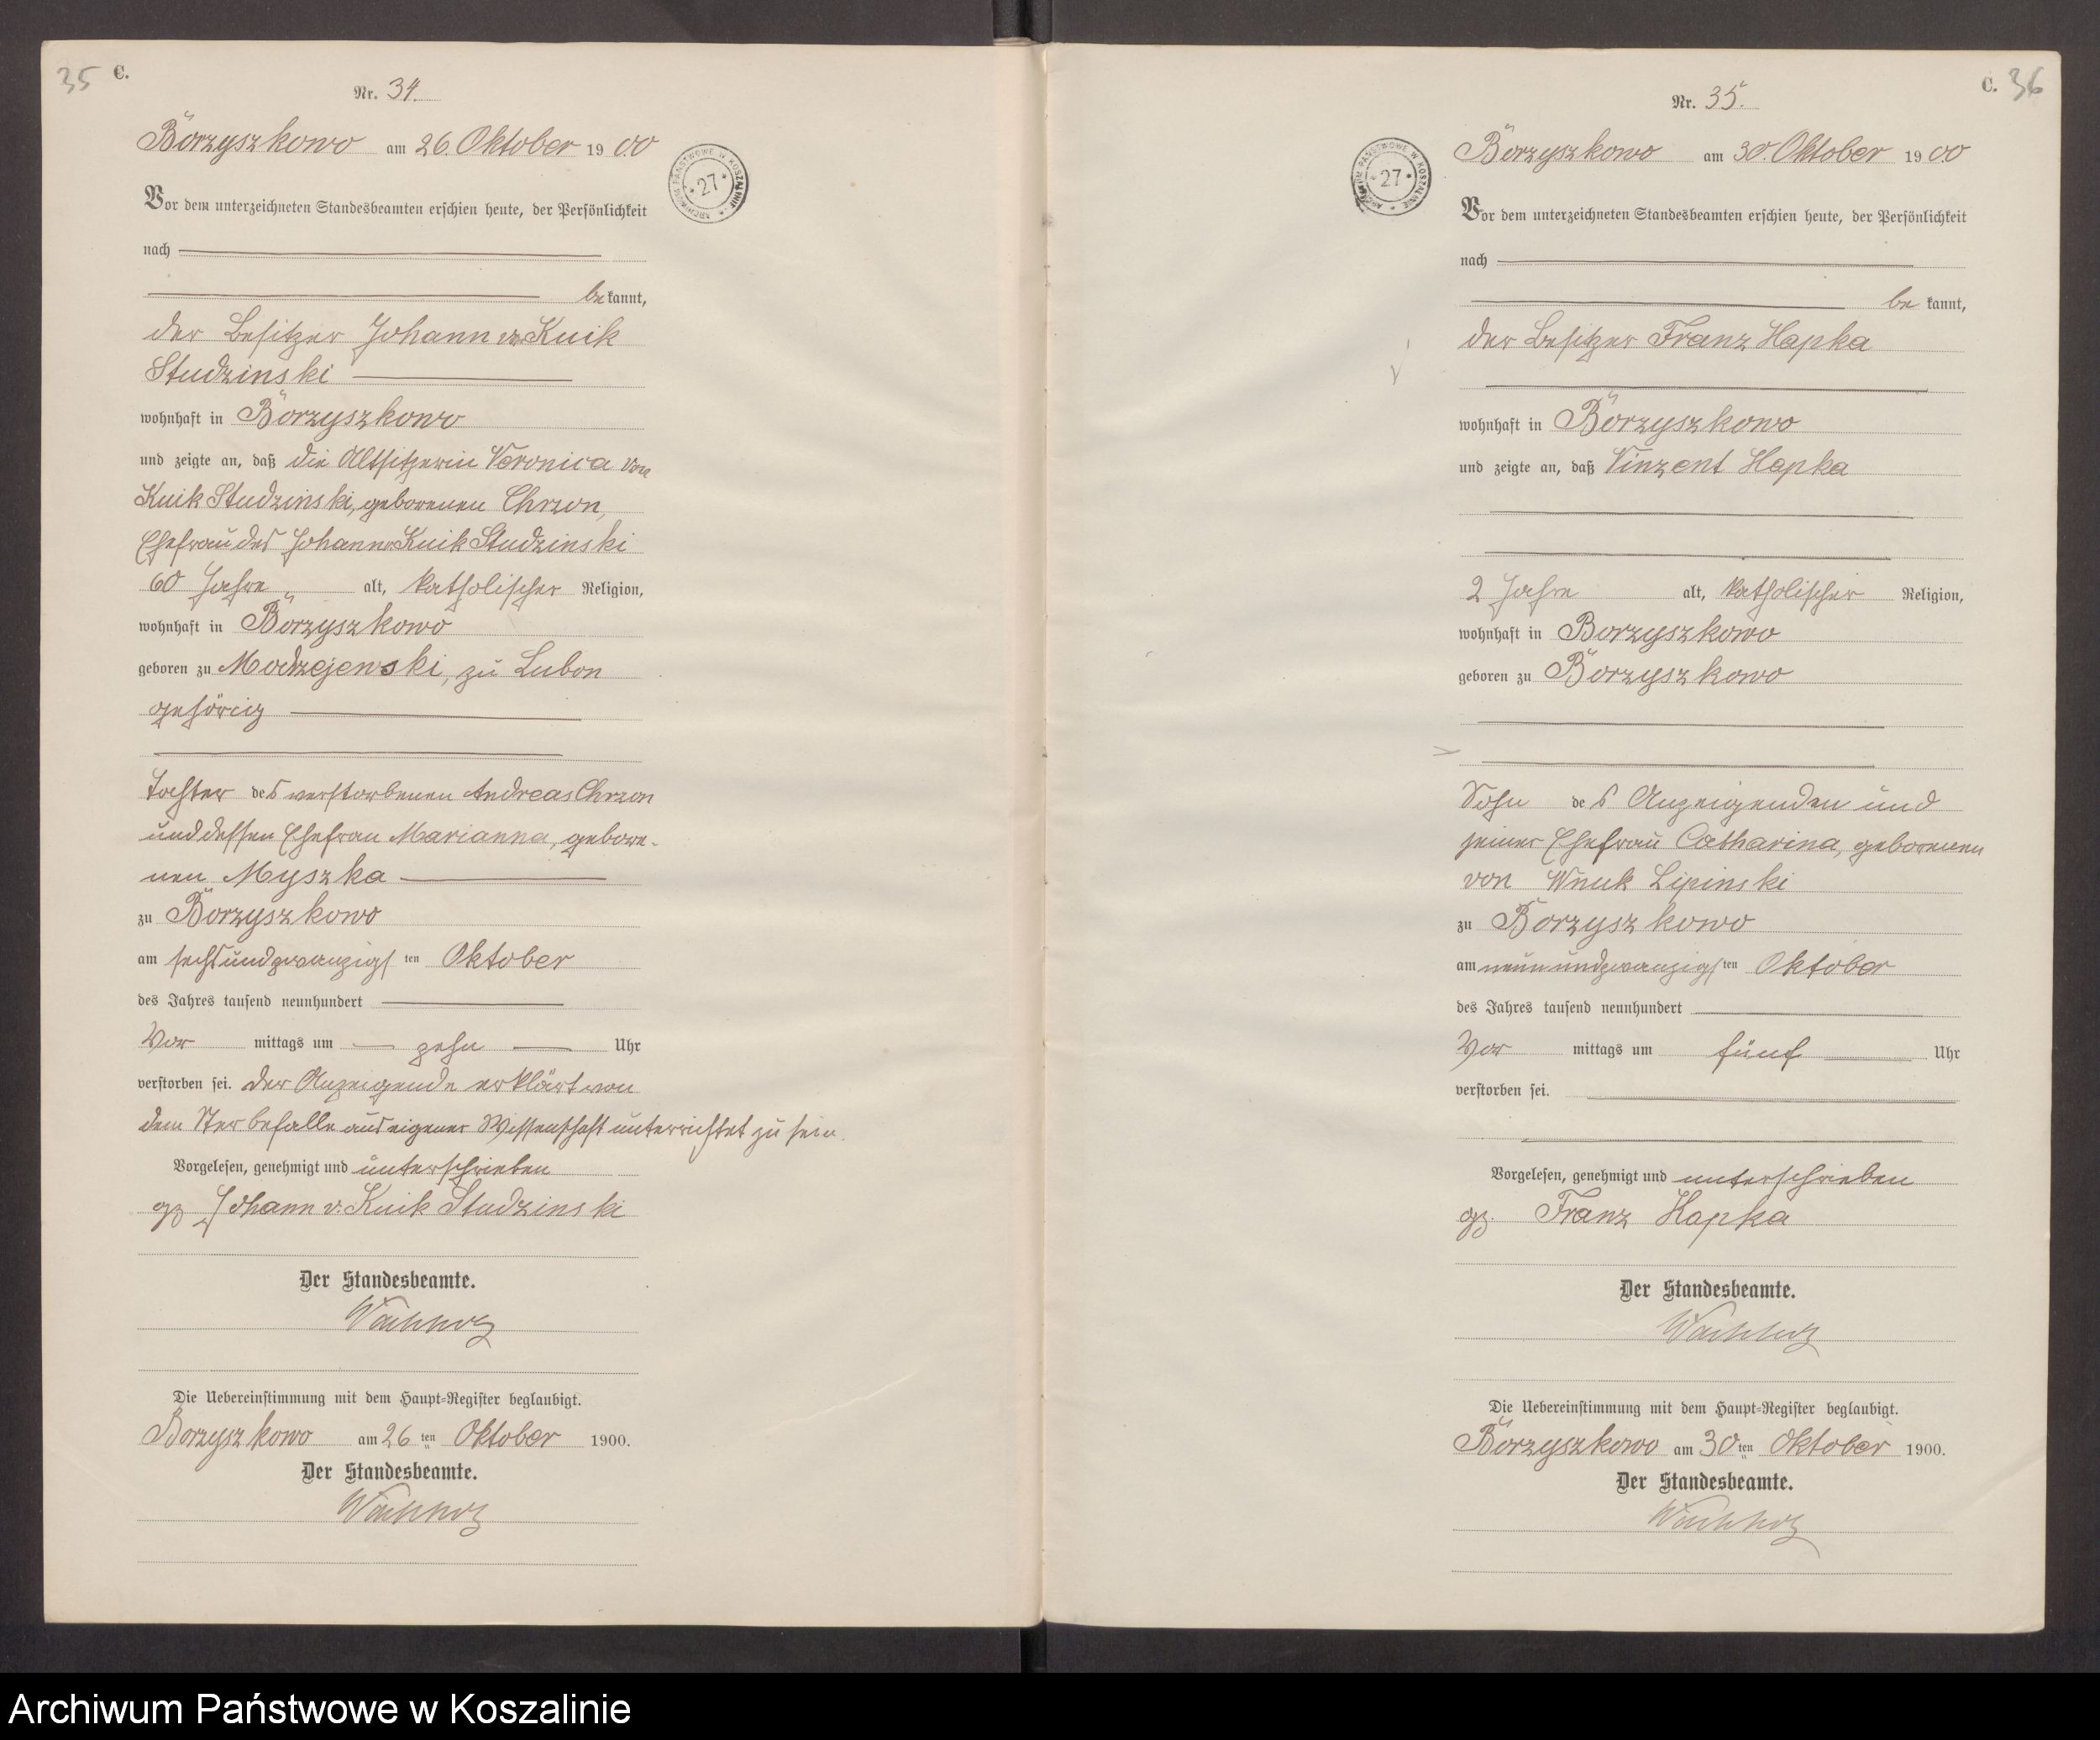 35 C.
Nr. 34.
Borzyszkowo am 26. Oktober 1900
Vor dem unterzeichneten Standesbeamten erschien heute, der Persönlichkeit
nach
bekannt,
der Besitzer Johann v. Kuik
Studzinski
wohnhaft in Borzyszkowo
und zeigte an, daß die Altsitzerin Veronica von
Kuik Studzinski, geborenen Chrzon,
Ehefrau des Johann v. Kuik Studzinski
60 Jahre alt, katholischer Religion,
wohnhaft in Borzyszkowo
geboren zu Modzejewski, zu Lubon
gehörig
Tochter des verstorbenen Andreas Chrzon
und dessen Ehefrau Marianna, gebore-
nen Myszka
zu Borzyszkowo
am sechsundzwanzigsten Oktober
des Jahres tausend neunhundert
Vor mittags um zehn Uhr
verstorben sei. Der Anzeigende erklärt von
dem Sterbefalle aus eigener Wissenschaft unterrichtet zu sein.
Vorgelesen, genehmigt und unterschrieben
gz Johann v. Kuik Studzinski
Der Standesbeamte.
Die Uebereinstimmung mit dem Haupt-Register beglaubigt.
Borzyszkowo am 26 ten Oktober 1900.
Der Standesbeamte.
ARCHIWUM PAŃSTWOWE W KOSZALINIE
* 27 *
C. 36
Nr. 35.
Borzyszkowo am 30. Oktober 1900
Vor dem unterzeichneten Standesbeamten erschien heute, der Persönlichkeit
nach
be kannt,
der Besitzer Franz Hapka
wohnhaft in Borzyszkowo
und zeigte an, daß Vinzent Hapka
2 Jahre alt, katholischer Religion,
wohnhaft in Borzyszkowo
geboren zu Borzyszkowo
Sohn des Anzeigenden und
seiner Ehefrau Catharina, geborenen
von Wnuk Lipinski
zu Borzyszkowo
am neunundzwanzigsten Oktober
des Jahres tausend neunhundert
Vor mittags um fünf Uhr
verstorben sei.
Vorgelesen, genehmigt und unterschrieben
gz. Franz Hapka
Der Standesbeamte.
Die Uebereinstimmung mit dem Haupt-Register beglaubigt.
Borzyszkowo am 30 ten Oktober 1900.
Der Standesbeamte.
ARCHIWUM PAŃSTWOWE W KOSZALINIE
* 27 *
Archiwum Państwowe w Koszalinie